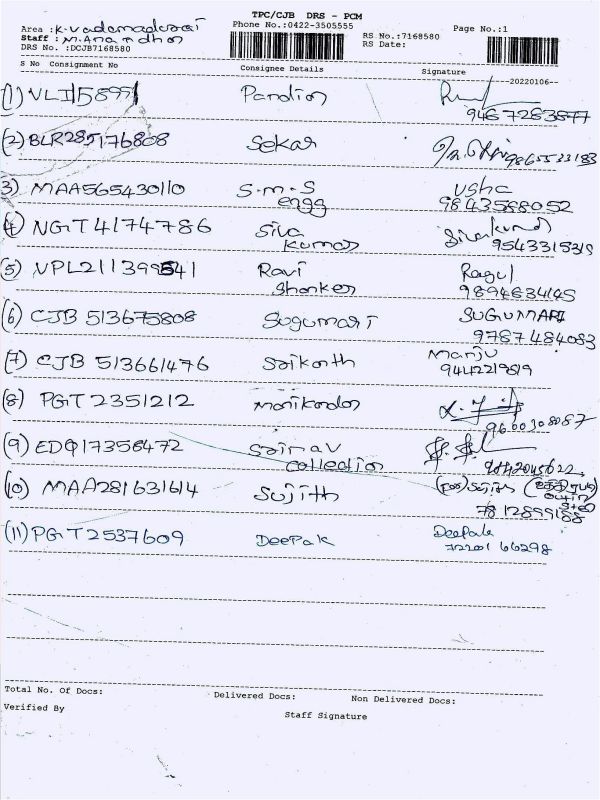 TPC/CJB DRS - PCM
Area : K. Vadamadurai Phone No.:0422-3505555 Page No.:1
Staff : M. Anandhan RS No.:7168580
DRS No. :DCJB7168580 RS Date:
S No Consignment No Consignee Details Signature
20220106
(1) Pandian
9487283877
(2) BLR285176808 Sekar 9865533183
3) MAA565430110 S.M.S Usha
engg 9843588052
(4) NGT4174786 Siva Sivakumar
Kumar 9543315319
(5) Ravi Ragul
Shanker 9894834145
(6) CJB 513675808 Sugumari SUGUMARI
9787484083
(7) CJB 513661476 Srikanth Manju
9442219819
(8) PGT 2351212 Manikandan
9600308087
(9) EDQ17358472 Sairav
Collection
(10) MAA281631614 Sujith
7812899188
(11) PGT2537609 Deepak Deepak
72001 66298
Total No. Of Docs: Delivered Docs: Non Delivered Docs:
Verified By Staff Signature